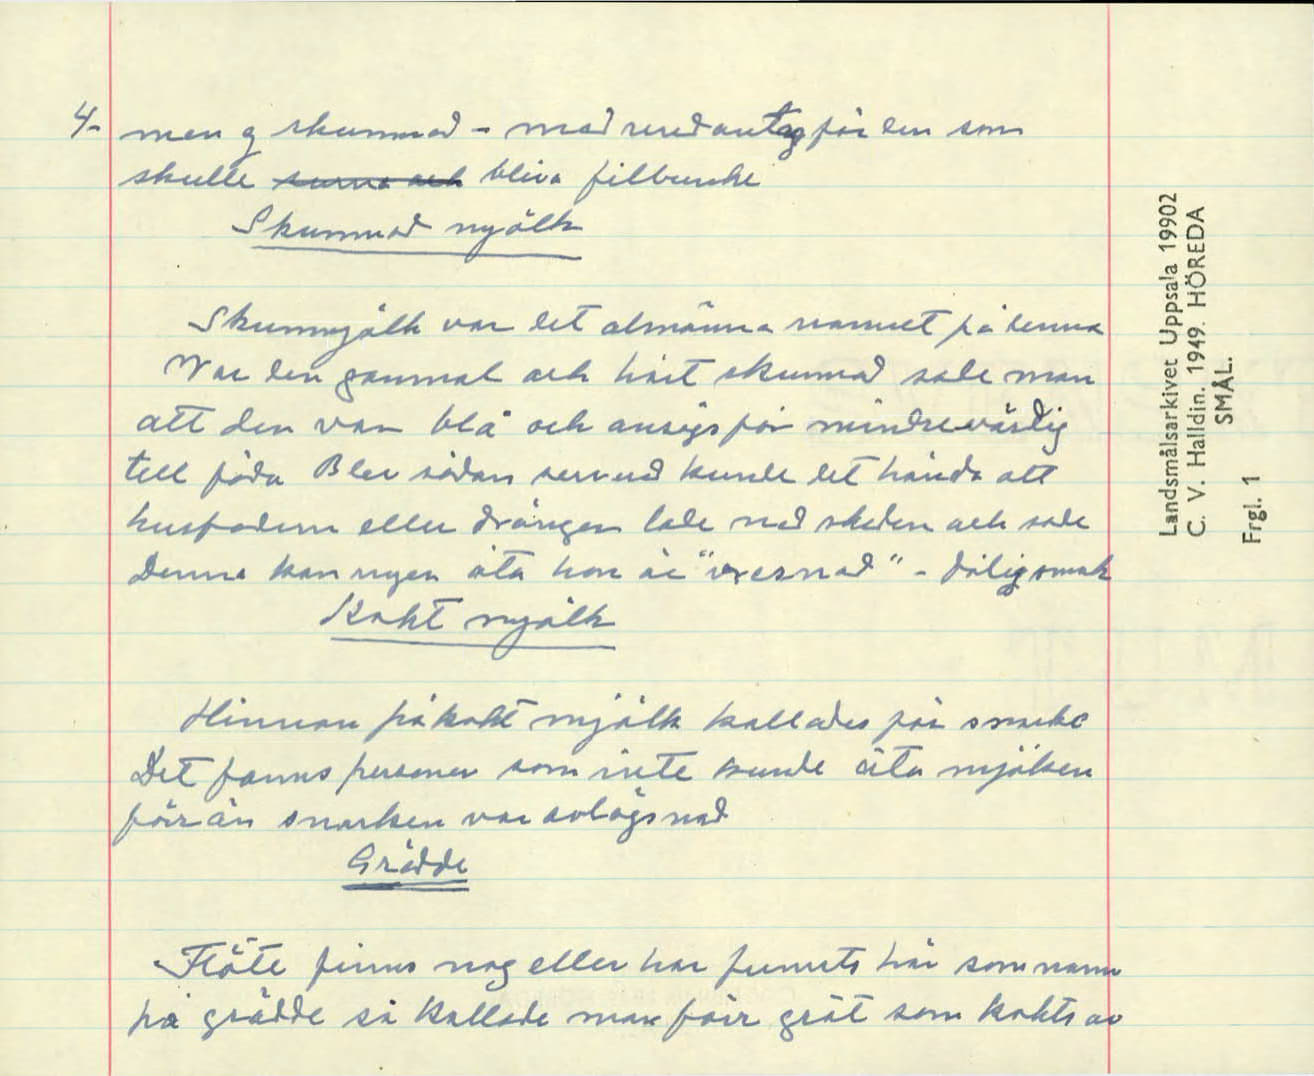 4- men ej skummad - med undantag för den som
skulle surna och bliva filbunke
Skummad mjölk
Skummjölk var det almänna namnet på denna
Var den gammal och hårt skummad sade man
att den var blå och ansågs för mindrevärdig
till föda Blev sådan serverad kunde det hända att
husfadern eller drängen lade ned skeden och sade
Denna kan ingen äta hon är " vresnad " - dålig smak
Kokt mjölk
Hinnan på kokt mjölk kallades för snarke
Det fanns personer som inte kunde äta mjölken
förrän snarken var avlägsnad
Grädde
Flöte finns nog eller har funnits här som namn
på grädde så kallade man förr gröt som kokts av
Landsmålsarkivet Uppsala 19902
C. V. Halldin. 1949. HÖREDA
SMÅL.
Frgl. 1